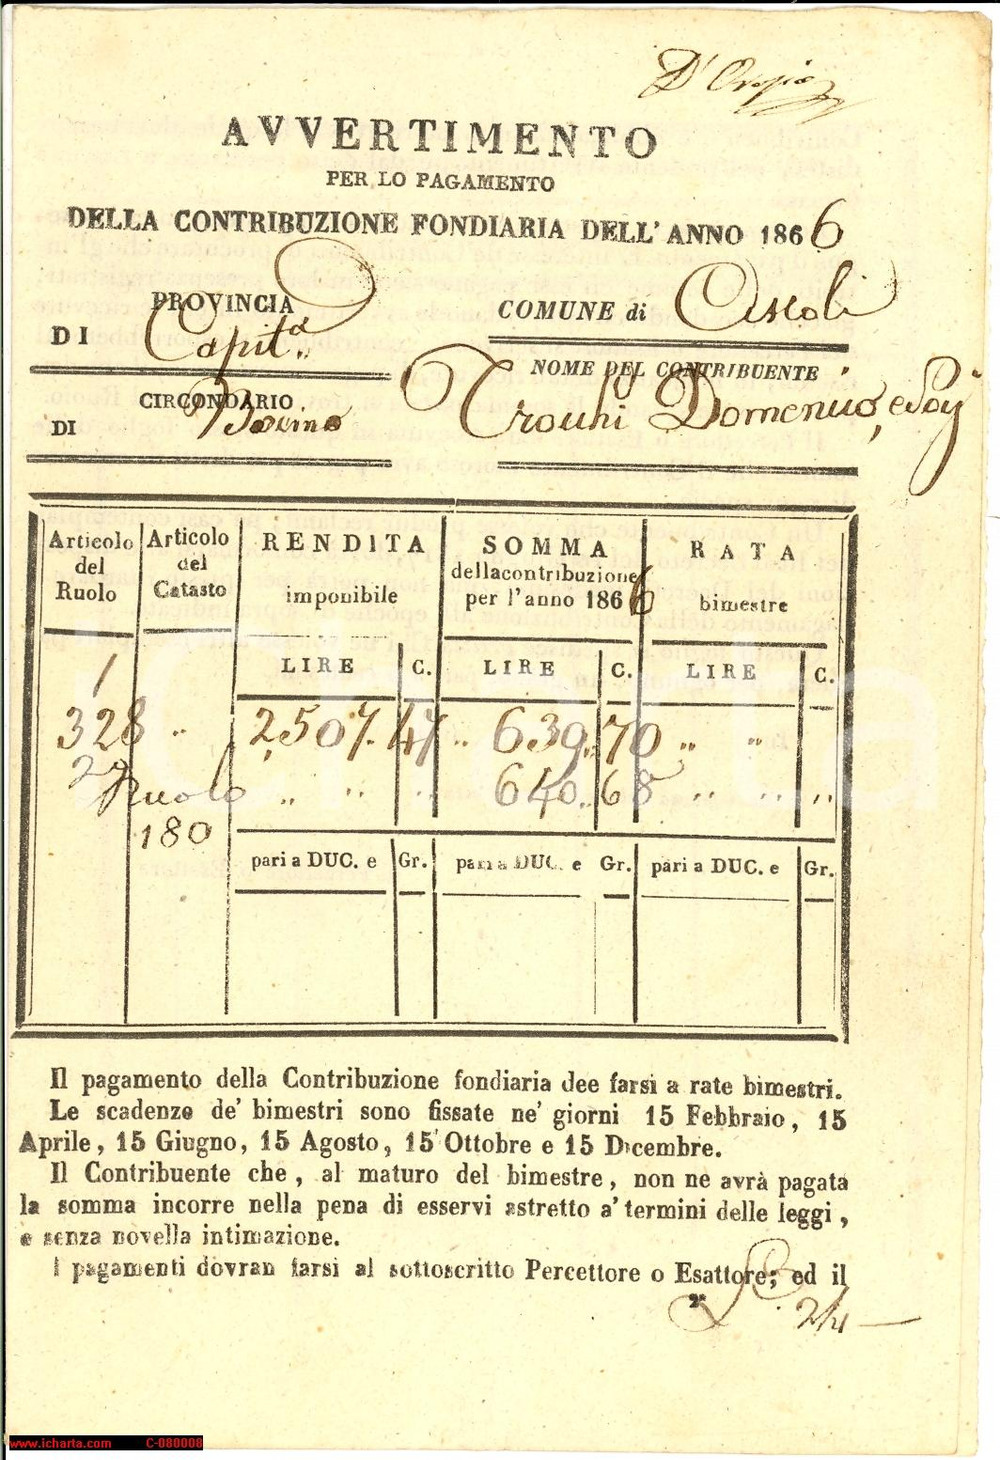 AVVERTIMENTO
PER LO PAGAMENTO
DELLA CONTRIBUZIONE FONDIARIA DELL' ANNO 1866
PROVINCIA
DI Capit.ta
COMUNE di Ascoli
CIRCONDARIO
DI Bovino
NOME DEL CONTRIBUENTE
Domenico, e
Articolo del Ruolo
Articolo del Catasto
RENDITA imponibile
SOMMA della contribuzione per l'anno 1866
RATA bimestre
LIRE C. LIRE C. LIRE C.
1
328 " 2,507. 47 " 639 " 70 " "
2° Ruolo " " " 640 " 68 " " "
180
pari a DUC. e Gr. pari a DUC. e Gr. pari a DUC. e Gr.
Il pagamento della Contribuzione fondiaria dee farsi a rate bimestri.
Le scadenze de' bimestri sono fissate ne' giorni 15 Febbraio, 15
Aprile, 15 Giugno, 15 Agosto, 15 Ottobre e 15 Dicembre.
Il Contribuente che, al maturo del bimestre, non ne avrà pagata
la somma incorre nella pena di esservi astretto a' termini delle leggi,
e senza novella intimazione.
I pagamenti dovran farsi al sottoscritto Percettore o Esattore; ed il
www.icharta.com C-080008